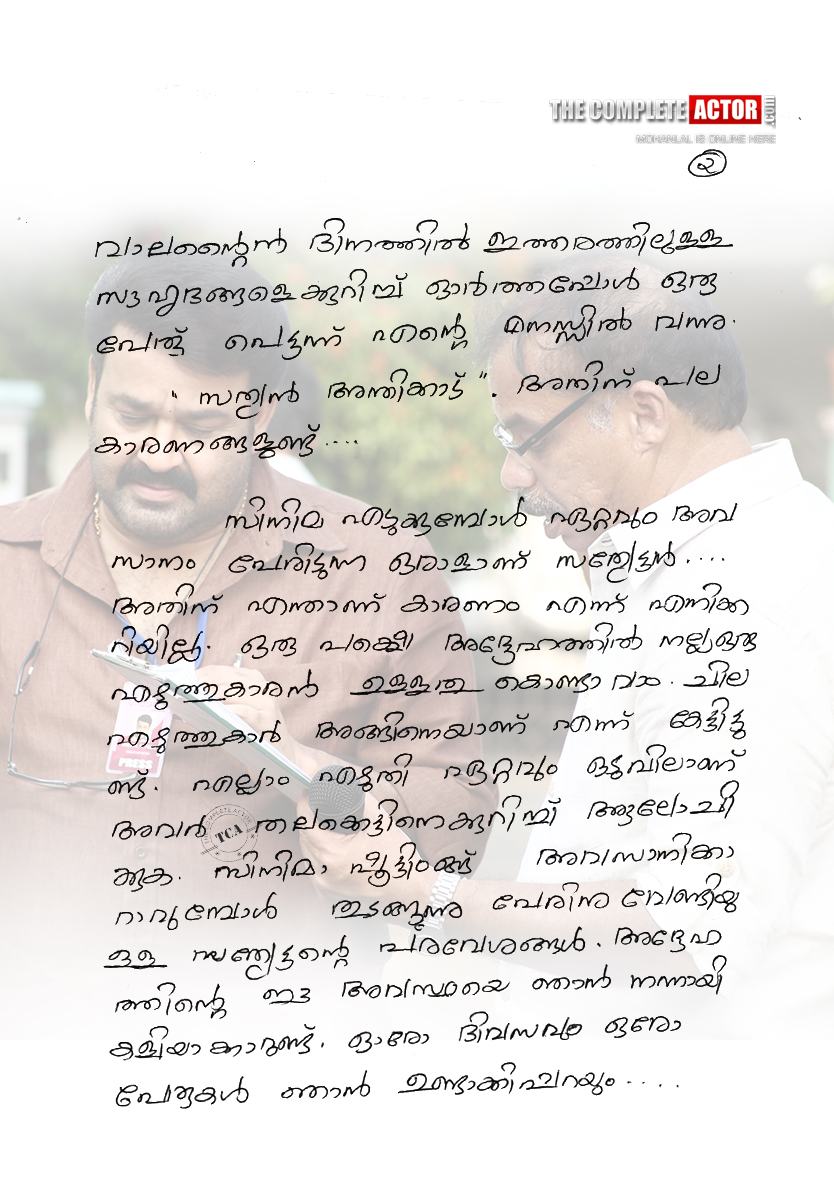 THE COMPLETE ACTOR .COM
MOHANLAL IS ONLINE HERE
൨
വാലന്റൈൻ ദിനത്തിൽ ഇത്തരത്തിലുള്ള
സുഹൃദങ്ങളെക്കുറിച്ച് ഓർത്തപ്പോൾ ഒരു
പേര് പെട്ടന്ന് എന്റെ മനസ്സിൽ വന്നു.
" സത്യൻ അന്തിക്കാട് ". അതിന് പല
കാരണങ്ങളുണ്ട് ....
സിനിമ എടുക്കുമ്പോൾ ഏറ്റവും അവ
സാനം പേരിടുന്ന ഒരാളാണ് സത്യേട്ടൻ....
അതിന് എന്താണ് കാരണം എന്ന് എനിക്ക
റിയില്ല. ഒരു പക്ഷെ അദ്ദേഹത്തിൽ നല്ലഒരു
എഴുത്തുകാരൻ ഉള്ളതു കൊണ്ടാവാം. ചില
എഴുത്തുകാർ അങ്ങിനെയാണ് എന്ന് കേട്ടിട്ടു
ണ്ട്. എല്ലാം എഴുതി ഏറ്റവും ഒടുവിലാണ്
അവർ തലക്കെട്ടിനെക്കുറിച്ച് ആലോചി
ക്കുക. സിനിമാ ഷൂട്ടിംങ്ങ് അവസാനിക്കാ
റാവുമ്പോൾ തുടങ്ങുന്നു പേരിനു വേണ്ടിയു
ള്ള സത്യേട്ടന്റെ പരവേശങ്ങൾ. അദ്ദേഹ
ത്തിന്റെ ഈ അവസ്ഥയെ ഞാൻ നന്നായി
കളിയാക്കാറുണ്ട്. ഓരോ ദിവസവും ഒരോ
പേരുകൾ ഞാൻ ഉണ്ടാക്കിപ്പറയും ....
PRESS
THE COMPLETE ACTOR
TCA